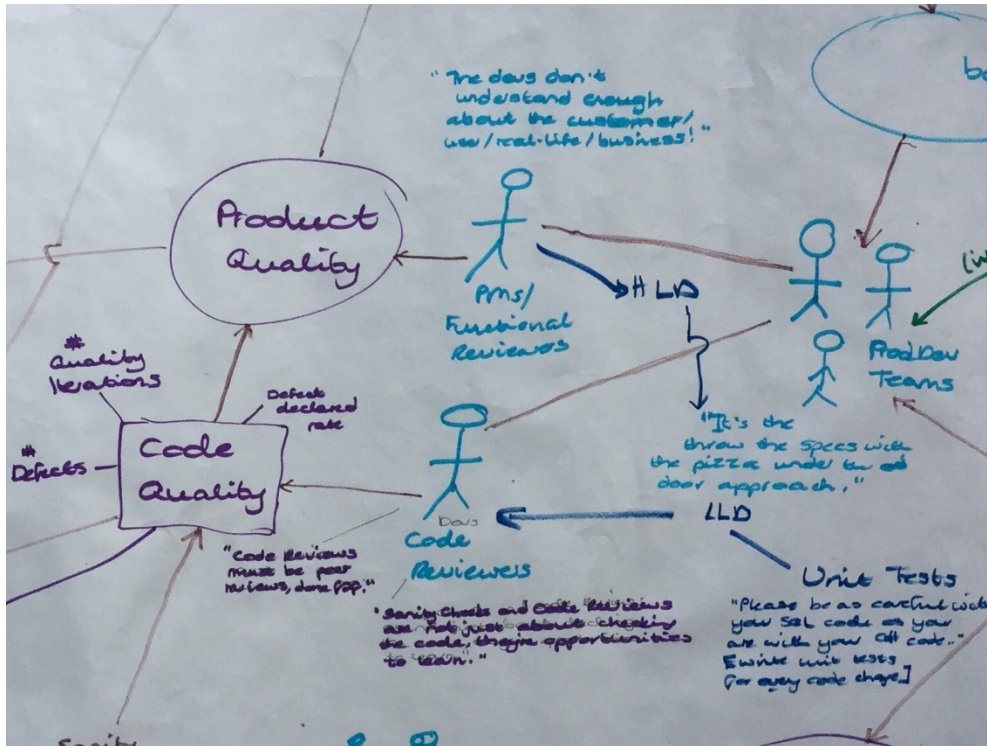 "The devs don't
understand enough
about the customer/
use/real-life/business!"
Product
Quality
PMs/
Functional
Reviewers
HLD
ProdDev
Teams
#
Quality
Iterations
Defects
declared
rate
#
Defects
Code
Quality
"It's the
throw the specs with
the pizza under the
door approach."
LLD
Devs
Code
Reviewers
"Code Reviews
must be peer
reviews, done ASAP."
"Sanity Checks and Code Reviews
are not just about checking
the code, they're opportunities
to learn."
Unit Tests
"Please be as careful with
your SQL code as you
are with your C# code."
[write unit tests
for every code change]
Sanity